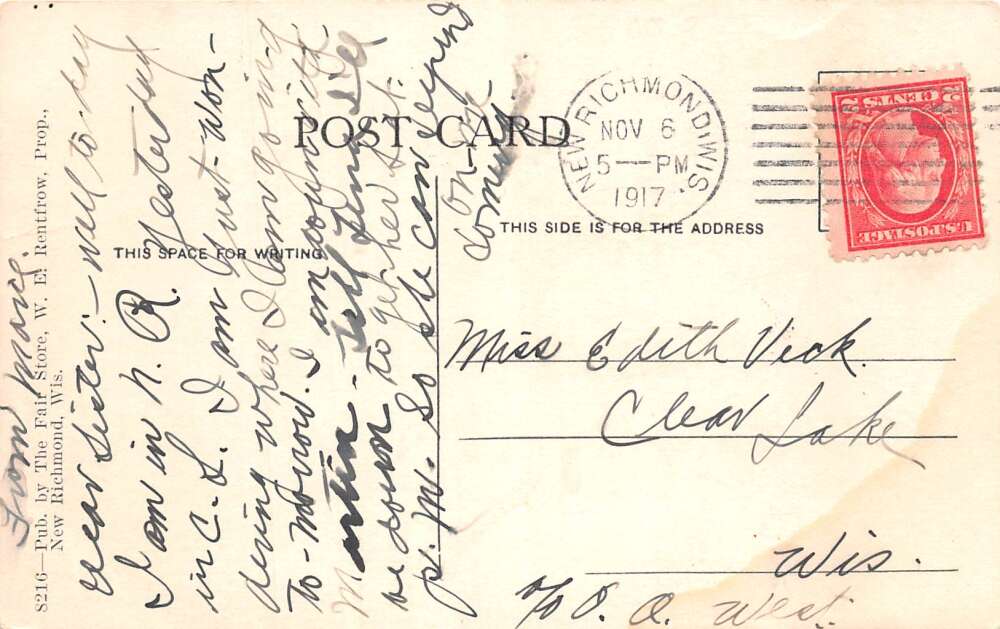 POST CARD
NEW RICHMOND, WIS.
NOV 6
5—PM
1917
2 CENTS 2
U.S. POSTAGE
THIS SPACE FOR WRITING
THIS SIDE IS FOR THE ADDRESS
S216—Pub. by The Fair Store, W. E. Rentfrow, Prop.,
New Richmond, Wis.
From Marie.
Dear Sister:- Well to-day
I am in N. R. Yesterday
in C. L. I am just won-
dering where I am going
To-morrow. I am
Martin - tell
be down to get her Sat.
p. M. So she can depend
on me
coming
Miss Edith Vick
Clear Lake
Wis.
c/o O. A. West.